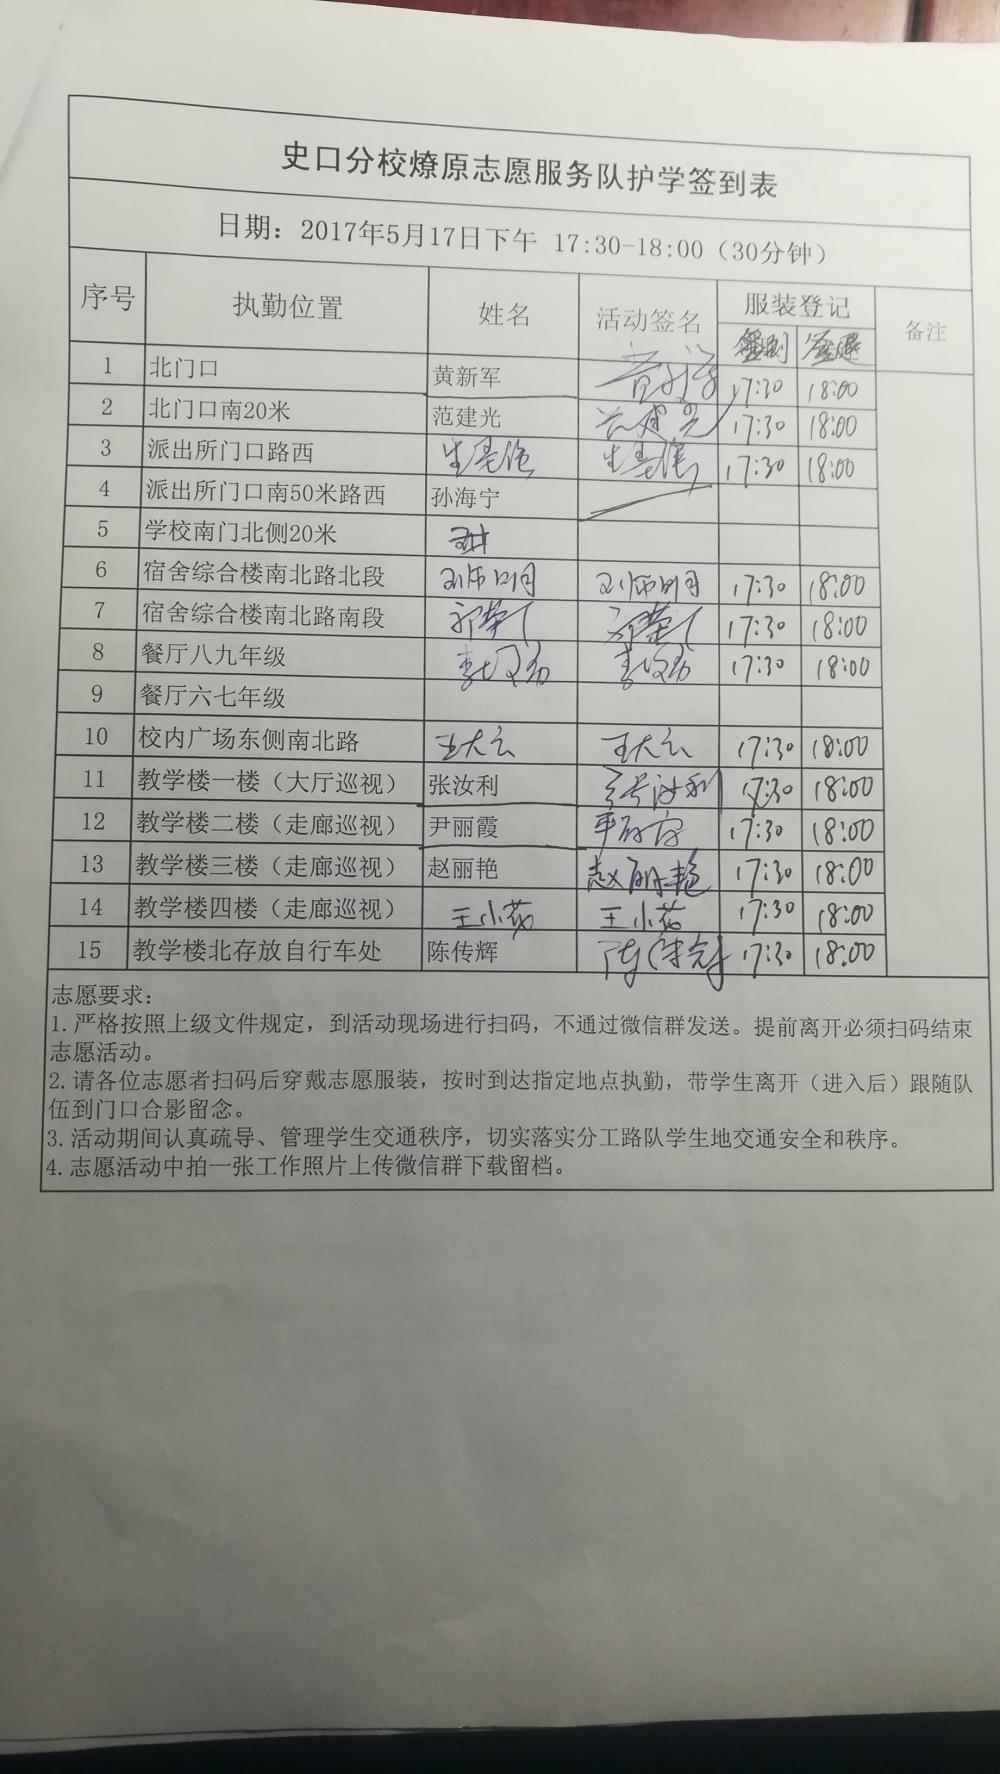 史口分校燎原志愿服务队护学签到表
日期：2017年5月17日下午 17:30-18:00（30分钟）
序号 执勤位置 姓名 活动签名 服装登记 备注
签到 签退
1 北门口 黄新军 17:30 18:00
2 北门口南20米 范建光 范建光 17:30 18:00
3 派出所门口路西 17:30 18:00
4 派出所门口南50米路西 孙海宁
5 学校南门北侧20米
6 宿舍综合楼南北路北段 17:30 18:00
7 宿舍综合楼南北路南段 17:30 18:00
8 餐厅八九年级 17:30 18:00
9 餐厅六七年级
10 校内广场东侧南北路 王大云 王大云 17:30 18:00
11 教学楼一楼（大厅巡视） 张汝利 张汝利 17:30 18:00
12 教学楼二楼（走廊巡视） 尹丽霞 17:30 18:00
13 教学楼三楼（走廊巡视） 赵丽艳 赵丽艳 17:30 18:00
14 教学楼四楼（走廊巡视） 17:30 18:00
15 教学楼北存放自行车处 陈传辉 17:30 18:00
志愿要求：
1.严格按照上级文件规定，到活动现场进行扫码，不通过微信群发送。提前离开必须扫码结束
志愿活动。
2.请各位志愿者扫码后穿戴志愿服装，按时到达指定地点执勤，带学生离开（进入后）跟随队
伍到门口合影留念。
3.活动期间认真疏导、管理学生交通秩序，切实落实分工路队学生地交通安全和秩序。
4.志愿活动中拍一张工作照片上传微信群下载留档。